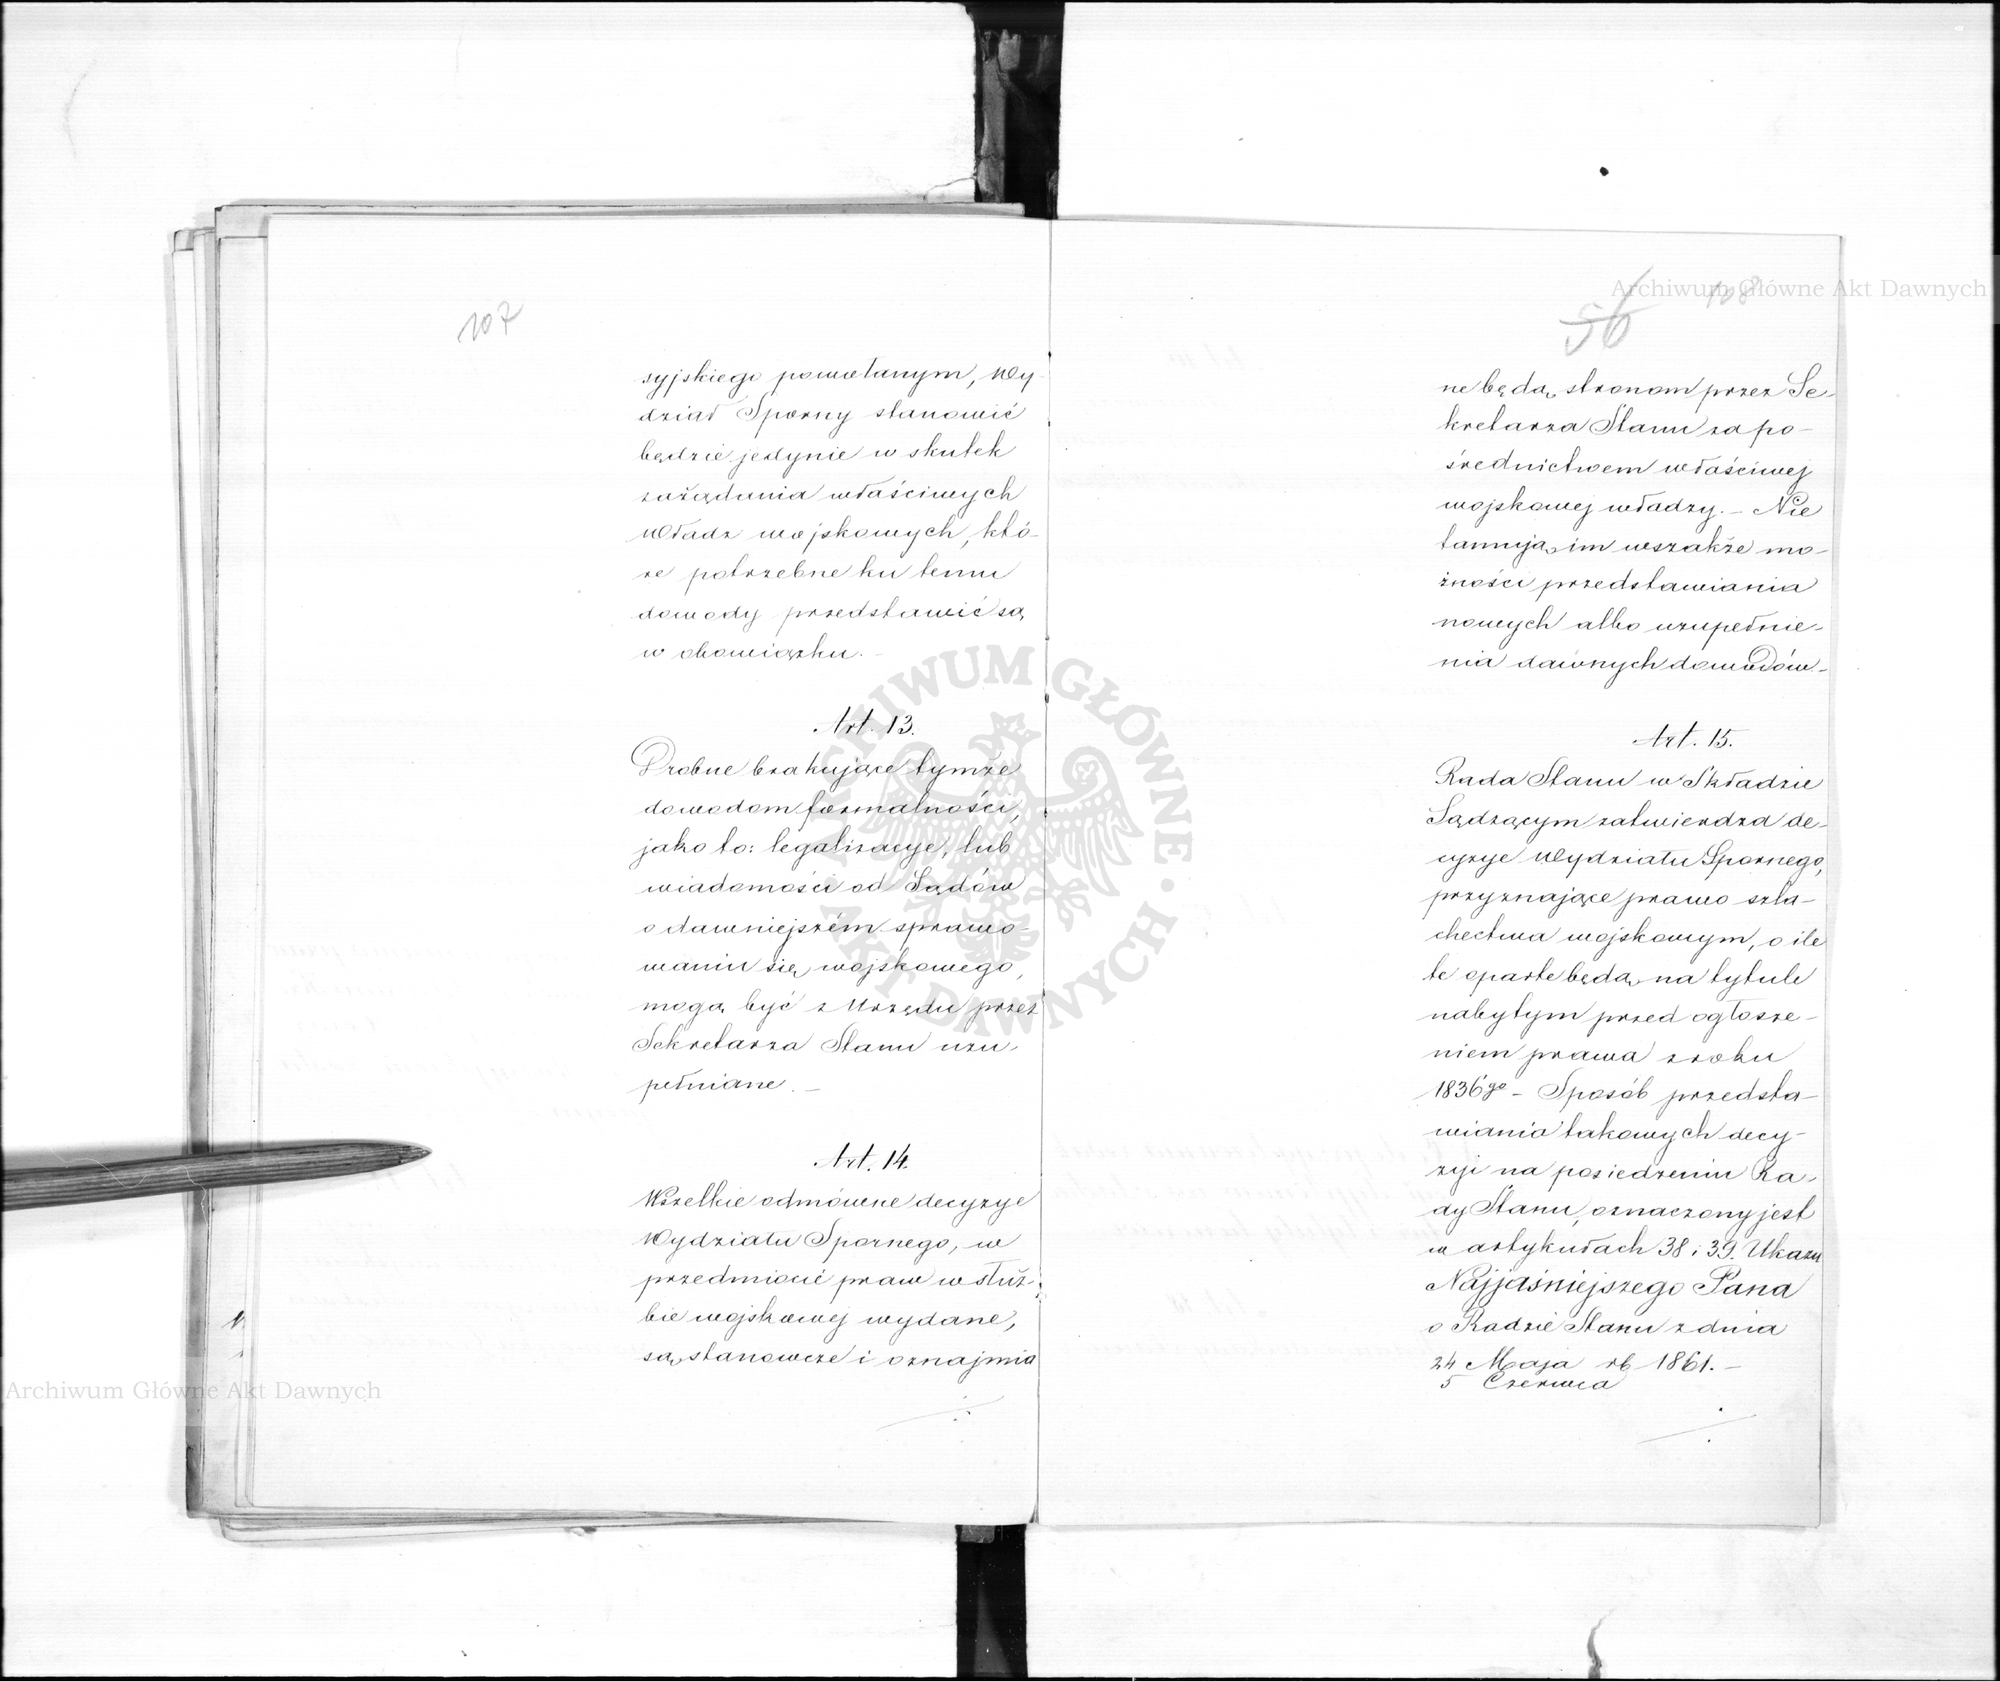 107
syjskiego powołanym, Wy-
dział Sporny stanowić
będzie jedynie w skutek
zażądania właściwych
Władz wojskowych, któ-
re potrzebne ku temu
dowody przedstawić są
w obowiązku. -
Art. 13.
Drobne brakujące tymże
dowodom formalności,
jako to: legalizacye, lub
wiadomości od Sądów
o dawniejszém sprawo-
waniu się wojskowego,
mogą być z Urzędu przez
Sekretarza Stanu uzu-
pełniane. -
Art. 14.
Wszelkie odmówne decyzye
Wydziału Spornego, w
przedmiocie praw w służ-
bie wojskowej wydane,
są stanowcze i oznajmio
56 108
ne będą stronom przez Se-
kretarza Stanu za po-
średnictwem właściwej
wojskowej władzy. - Nie
tamują im wszakże mo-
żności przedstawiania
nowych albo uzupełnie-
nia dawnych dowodów -
Art. 15.
Rada Stanu w Składzie
Sądzącym zatwierdza de-
cyzye Wydziału Spornego,
przyznające prawo szla-
chectwa wojskowym, o ile
te oparte będą na tytule
nabytym przed ogłosze-
niem prawa z roku
1836go - Sposób przedsta-
wiania takowych decy-
zyi na posiedzeniu Ra-
dy Stanu, oznaczony jest
w artykułach 38 i 39. Ukazu
Najjaśniejszego Pana
o Radzie Stanu z dnia
24 Maja rb 1861. -
5 Czerwca
Archiwum Główne Akt Dawnych
Archiwum Główne Akt Dawnych
ARCHIWUM GŁÓWNE AKT DAWNYCH